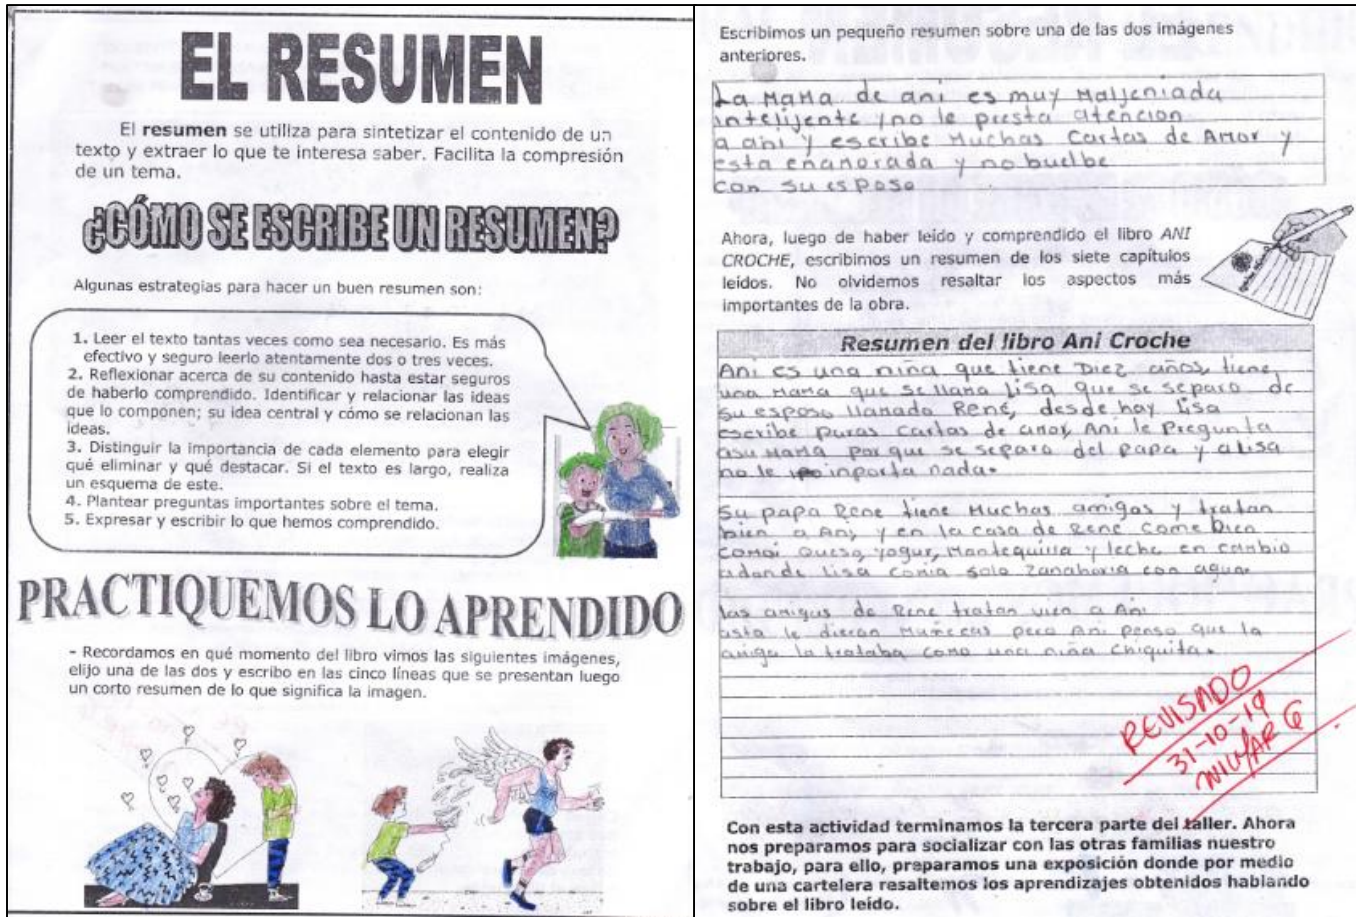 EL RESUMEN
El resumen se utiliza para sintetizar el contenido de un
texto y extraer lo que te interesa saber. Facilita la compresión
de un tema.
¿CÓMO SE ESCRIBE UN RESUMEN?
Algunas estrategias para hacer un buen resumen son:
1. Leer el texto tantas veces como sea necesario. Es más
efectivo y seguro leerlo atentamente dos o tres veces.
2. Reflexionar acerca de su contenido hasta estar seguros
de haberlo comprendido. Identificar y relacionar las ideas
que lo componen; su idea central y cómo se relacionan las
ideas.
3. Distinguir la importancia de cada elemento para elegir
qué eliminar y qué destacar. Si el texto es largo, realiza
un esquema de este.
4. Plantear preguntas importantes sobre el tema.
5. Expresar y escribir lo que hemos comprendido.
PRACTIQUEMOS LO APRENDIDO
- Recordamos en qué momento del libro vimos las siguientes imágenes,
elijo una de las dos y escribo en las cinco líneas que se presentan luego
un corto resumen de lo que significa la imagen.
Escribimos un pequeño resumen sobre una de las dos imágenes
anteriores.
La mama de ani es muy maljeniada
intelijente y no le presta atencion
a ani y escribe muchas cartas de amor y
esta enanorada y no buelbe
con su esposo
Ahora, luego de haber leído y comprendido el libro ANI
CROCHE, escribimos un resumen de los siete capítulos
leídos. No olvidemos resaltar los aspectos más
importantes de la obra.
Resumen del libro Ani Croche
Ani es una niña que tiene Diez años, tiene
una mama que se llama Lisa que se separo de
su esposo llamado René, desde hay Lisa
escribe puras cartas de amor, Ani le pregunta
asu mama por que se separo del papa y a lisa
no le inporta nada.
Su papa Rene tiene muchas amigas y tratan
bien a Ani, y en la casa de Rene come bien
comoi queso, yogur, mantequilla y leche en cambio
adonde lisa comia solo zanahoria con agua.
las amigas de Rene tratan vien a Ani
asta le dieron muñecas pero Ani penso que la
amiga la trataba como una niña chiquita.
REVISADO
31-10-19
Con esta actividad terminamos la tercera parte del taller. Ahora
nos preparamos para socializar con las otras familias nuestro
trabajo, para ello, preparamos una exposición donde por medio
de una cartelera resaltemos los aprendizajes obtenidos hablando
sobre el libro leído.